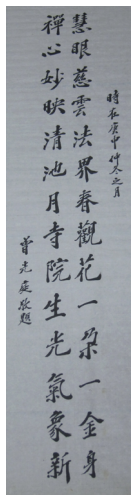 時在庚申仲冬之月
慧眼慈雲法界春觀花一朵一金身
禪心妙映清池月寺院生光氣象新
曾光庭敬題